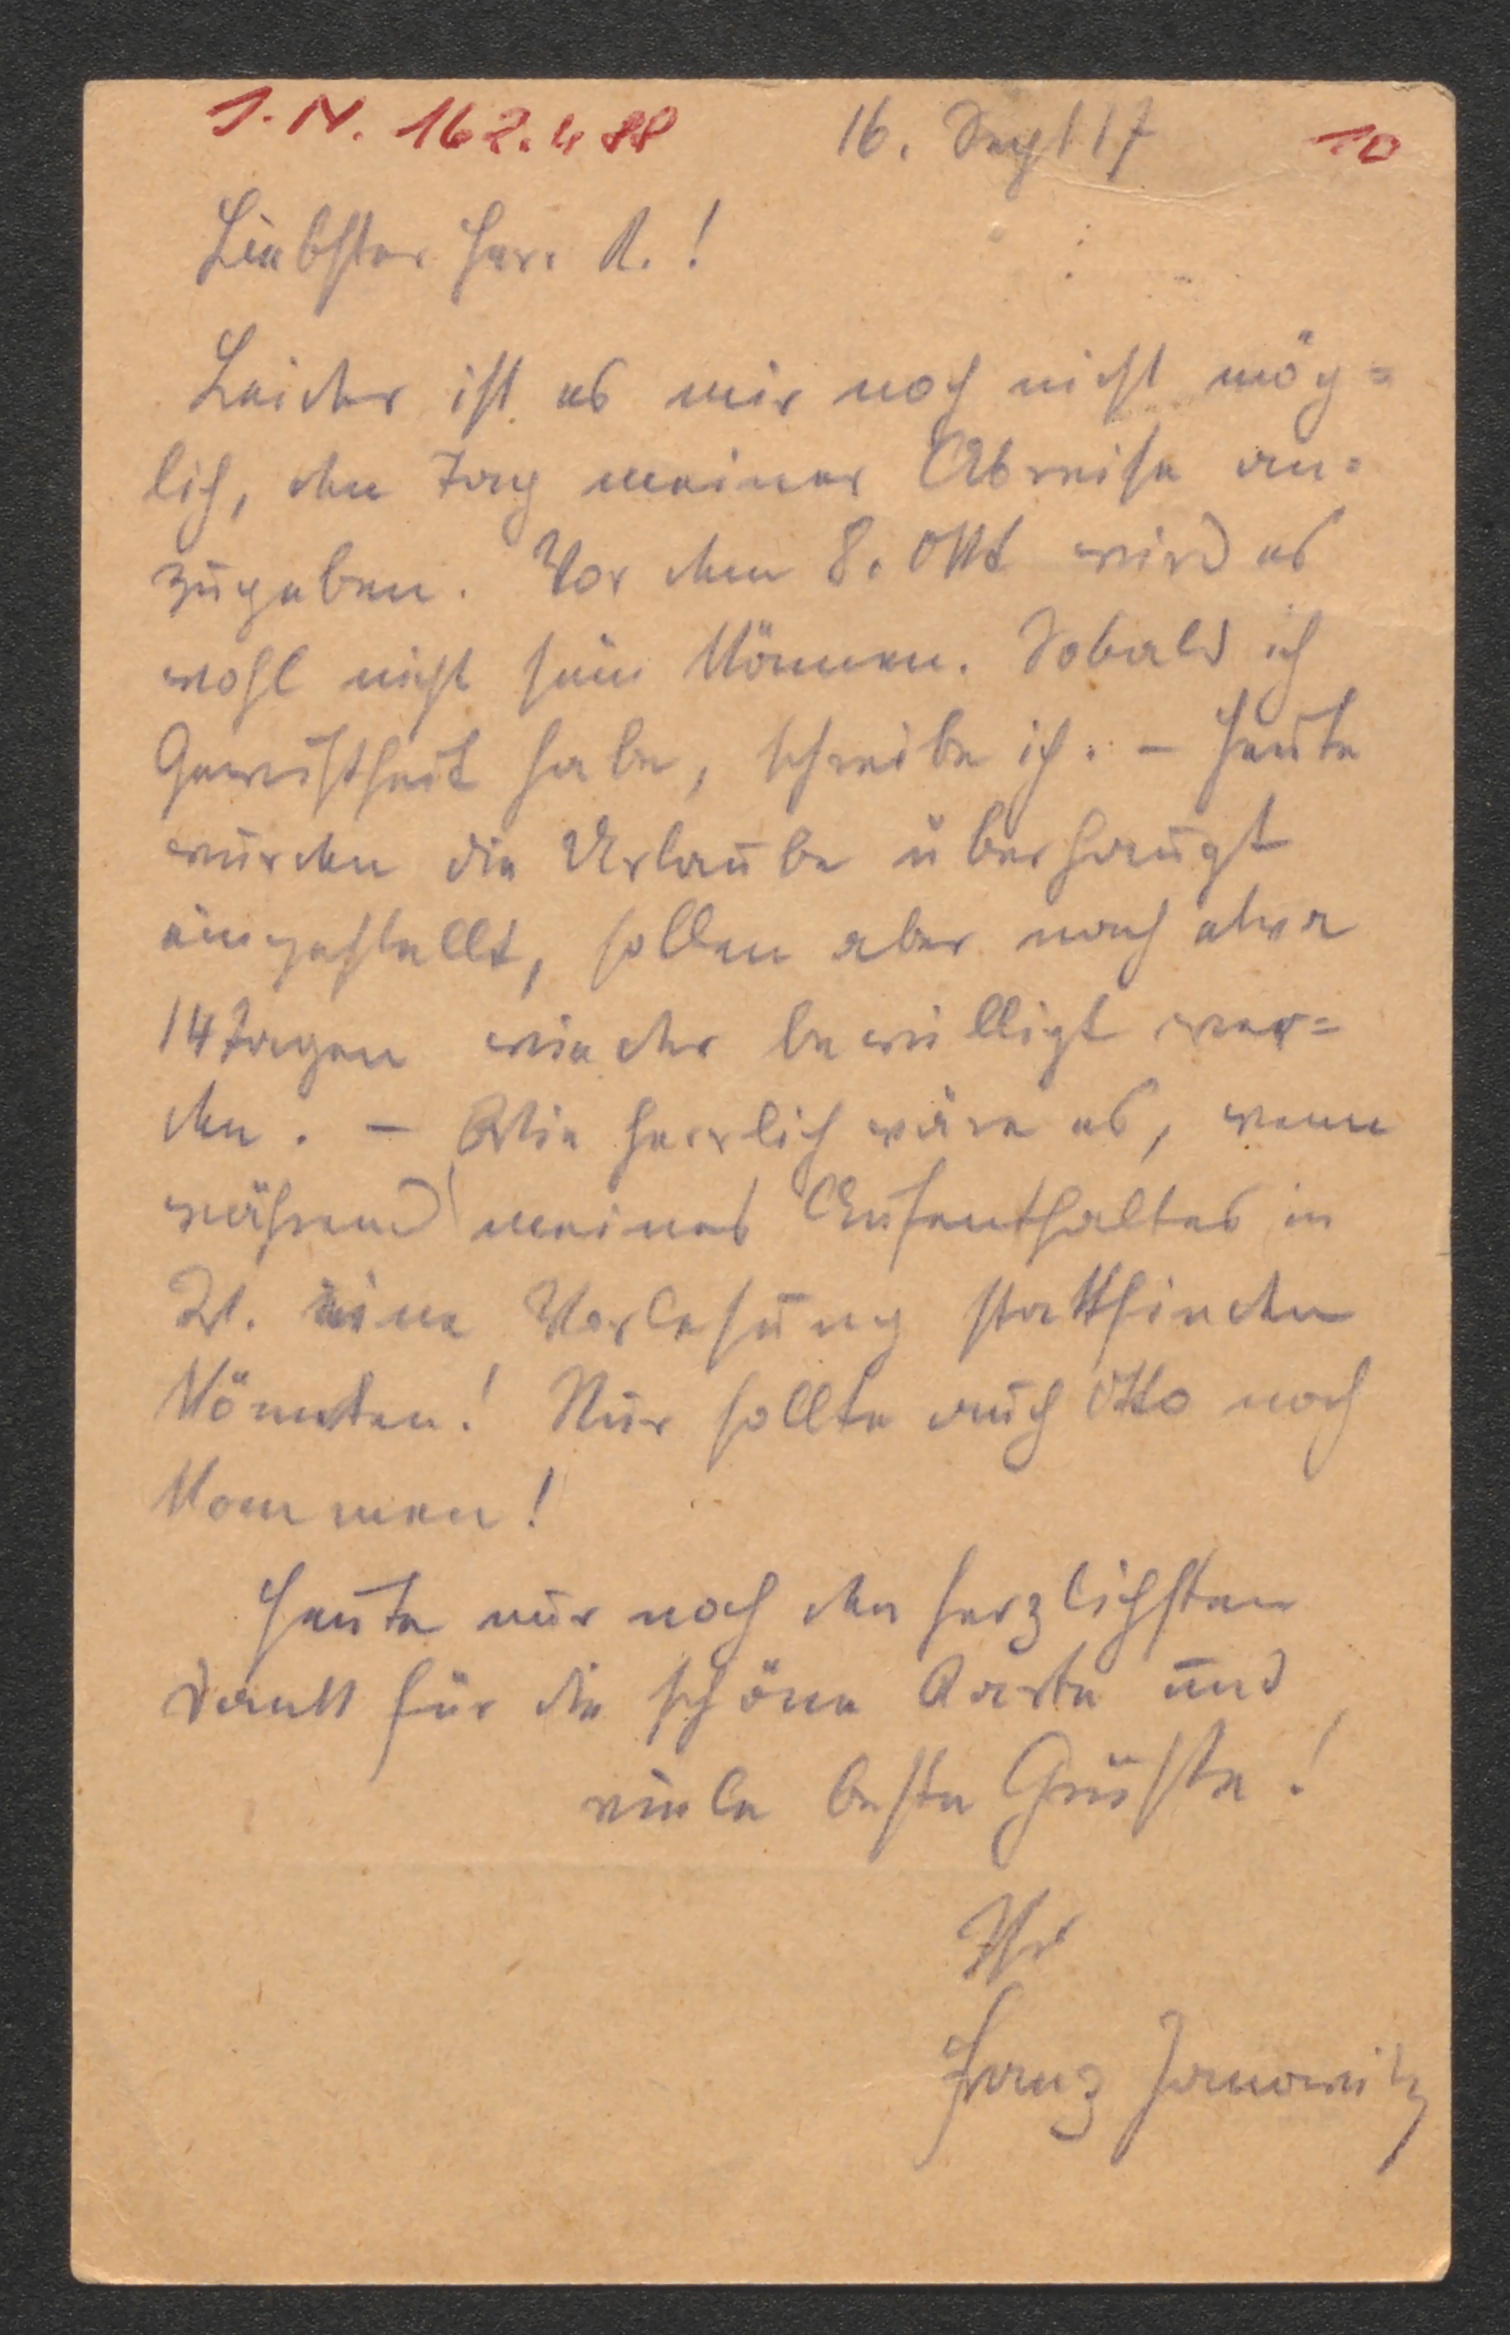 J.N. 162.488 16. Sept 17 10
Liebster Herr K.!
Leider ist es mir noch nicht mög=
lich, den Tag meiner Abreise an=
zugeben. Vor dem 8. Okt wird es
wohl nicht sein können. Sobald ich
Gewißheit habe, schreibe ich. – Heute
wurden die Urlaube überhaupt
eingestellt, sollen aber nach etwa
14 Tagen wieder bewilligt wer=
den. – Wie herrlich wäre es, wenn
während meines Aufenthaltes in
W. eine Vorlesung stattfinden
könnte! Nur sollte auch Otto noch
kommen!
Heute nur noch den herzlichsten
Dank für die schöne Karte und
viele beste Grüße!
Ihr
Franz Janowitz